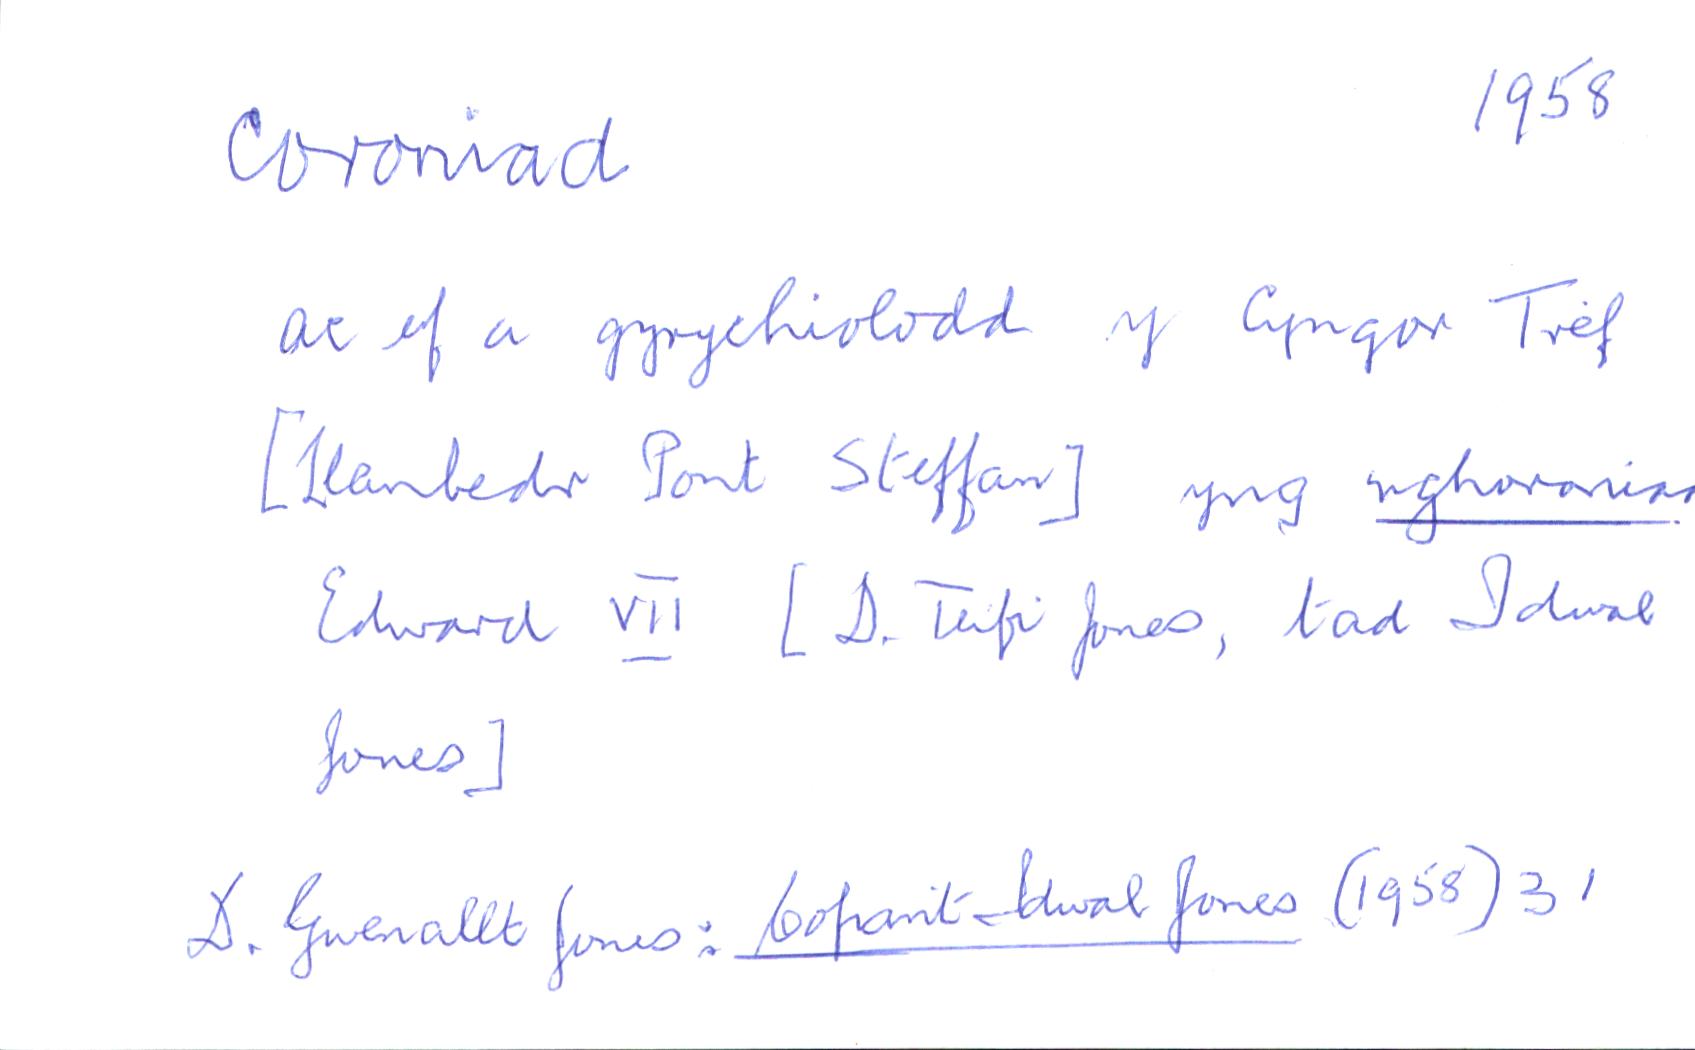 1958
Coroniad
ac ef a gynrychiolodd y Cyngor Tref
[Llanbedr Pont Steffan] yng nghoronia
Edward VII [D. Teifi Jones, tad Idwal
Jones]
D. Gwenallt Jones: Cofiant Idwal Jones (1958) 31